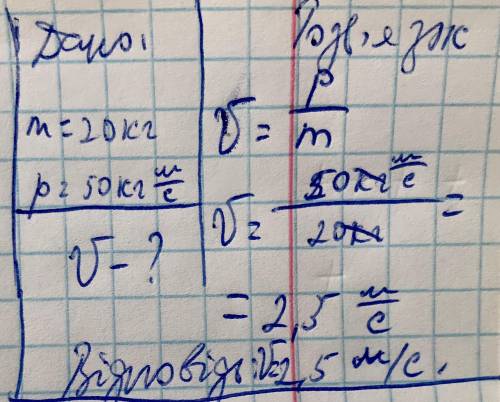 Дано:
m = 20 кг
p = 50 кг м/с
v - ?
Розв'язок
v = p/m
v = 50 кг м/с / 20 кг =
= 2,5 м/с
Відповідь: v=2,5 м/с.